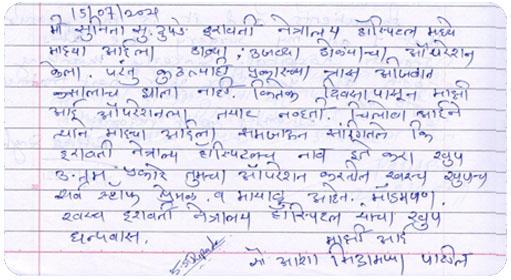 15/07/2024
मी सुनिता सु. रुपडे इरावती नेत्रालय हॉस्पिटल मध्ये
माझ्या आईला डाव्या, उजव्या डोळ्याचा ऑपरेशन
केला. परंतु कुठल्याही प्रकारच्या त्रास अजिबात
कसलाच झाला नाही. कितेक दिवसा पासून माझी
आई ऑपरेशनला तयार नव्हती.
त्याने माझ्या आईला समजाऊन सांगितले कि
इरावती नेत्रालय हॉस्पिटलच नाव इथे करा खुप
उत्तम प्रकारे तुमचा ऑपरेशन करतील स्वस्थ खुपच
सर्व स्टाफ प्रेमळ व मायाळू आहेत. मॅडमपण.
स्वच्छ इरावती नेत्रालय हॉस्पिटल याचा खुप
धन्यवाद. माझी आई
सौ आशा पाटील